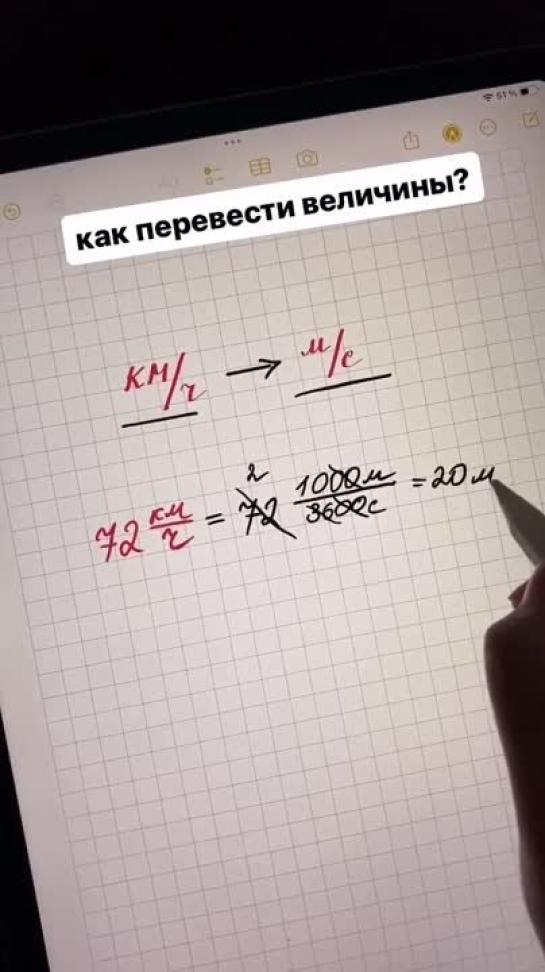 51%
как перевести величины?
км/ч → м/с
72 км/ч = 72 2 1000м/3600с = 20 м